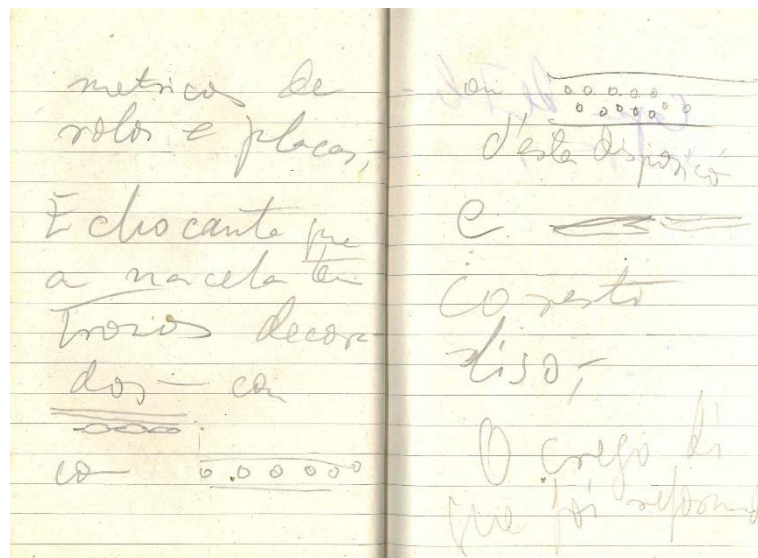 metricos de
rolos e placas,
É chocante que
a nacela ten
trozos decora-
dos — con
co
ou
d'esta disposicó
e
co resto
liso,
O crego di
que foi reformad